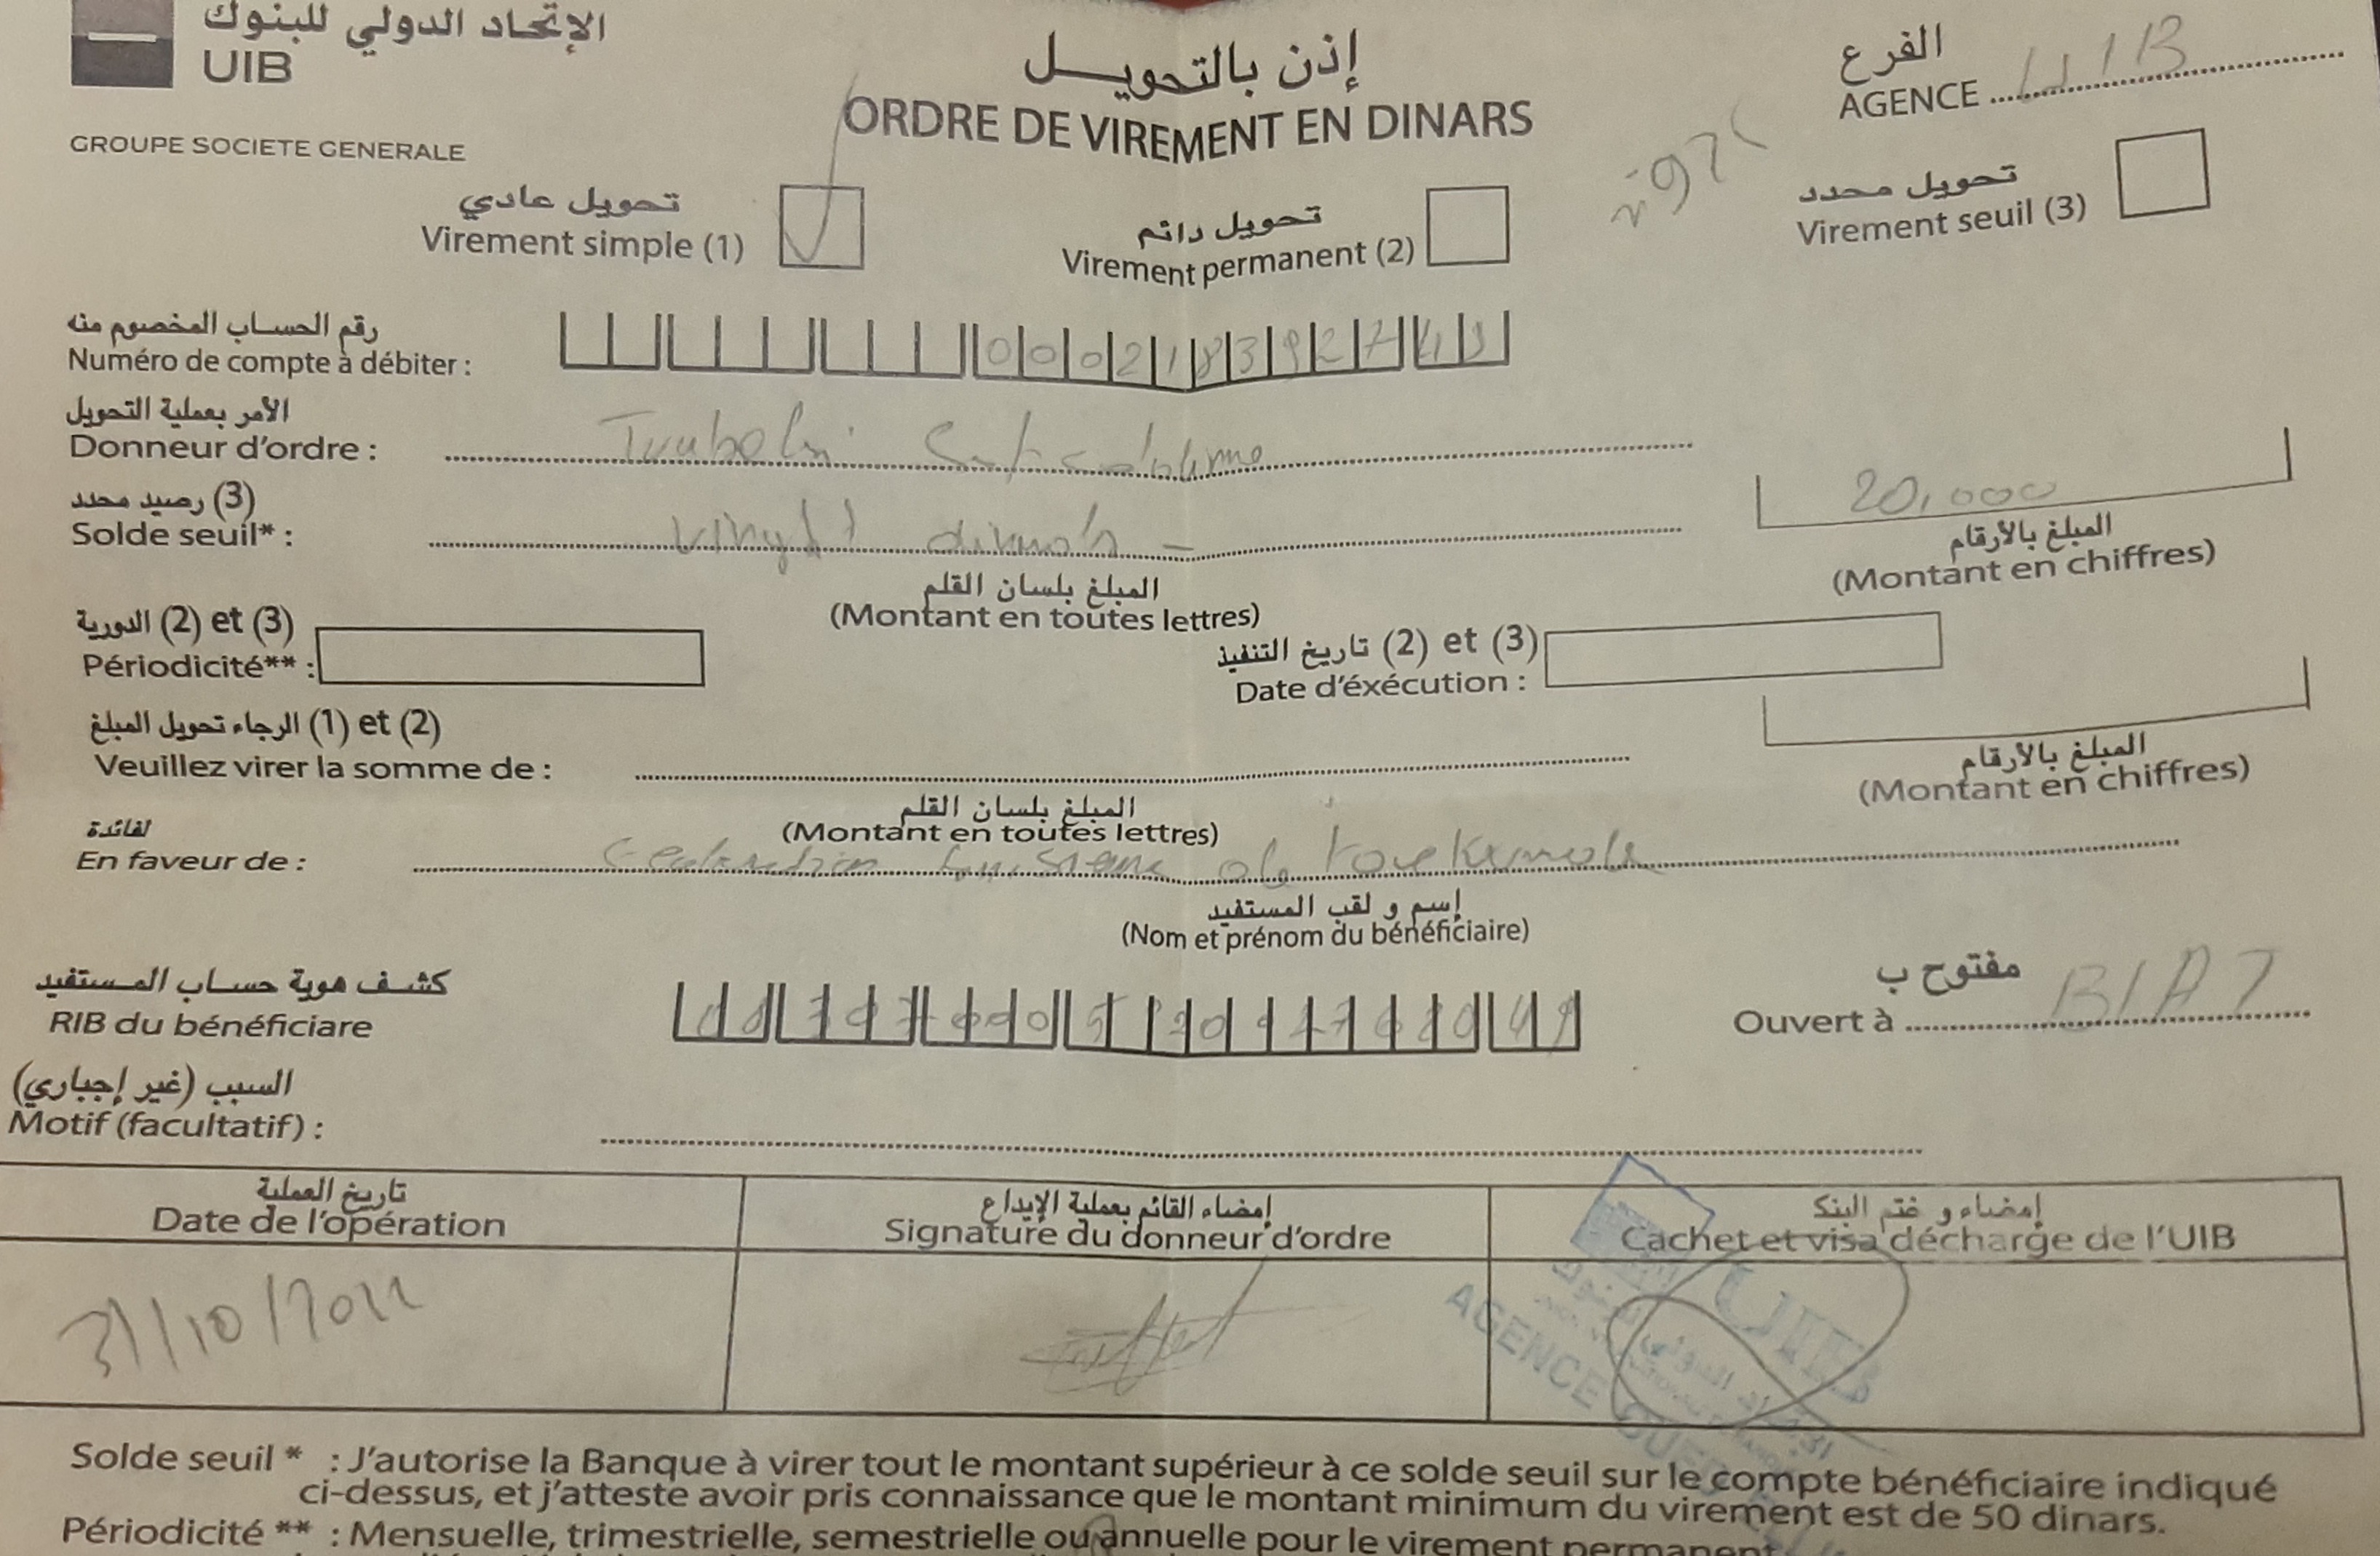 الإتحاد الدولي للبنوك
UIB
GROUPE SOCIETE GENERALE
إذن بالتحويل
ORDRE DE VIREMENT EN DINARS
الفرع
AGENCE UIB
تحويل عادي
Virement simple (1)
تحويل دائم
Virement permanent (2)
تحويل محدد
Virement seuil (3)
رقم الحساب المخصوم منه
Numéro de compte à débiter :
الأمر بعملية التحويل
Donneur d'ordre :
(3) رصيد محدد
Solde seuil* : dinars
20,000
المبلغ بالأرقام
(Montant en chiffres)
المبلغ بلسان القلم
(Montant en toutes lettres)
الدورية (2) et (3)
Périodicité** :
تاريخ التنفيذ (2) et (3)
Date d'éxécution :
الرجاء تحويل المبلغ (1) et (2)
Veuillez virer la somme de :
المبلغ بالأرقام
(Montant en chiffres)
المبلغ بلسان القلم
(Montant en toutes lettres)
لفائدة
En faveur de :
إسم و لقب المستفيد
(Nom et prénom du bénéficiaire)
كشف هوية حساب المستفيد
RIB du bénéficiare
مفتوح ب
Ouvert à BIAT
السبب (غير إجباري)
Motif (facultatif) :
تاريخ العملية
Date de l'opération
إمضاء القائم بعملية الإيداع
Signature du donneur d'ordre
إمضاء و ختم البنك
Cachet et visa décharge de l'UIB
31/10/2022
UIB
AGENCE
Solde seuil * : J'autorise la Banque à virer tout le montant supérieur à ce solde seuil sur le compte bénéficiaire indiqué
ci-dessus, et j'atteste avoir pris connaissance que le montant minimum du virement est de 50 dinars.
Périodicité ** : Mensuelle, trimestrielle, semestrielle ou annuelle pour le virement permanent